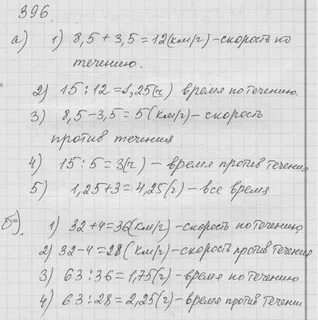 396.
а) 1) 8,5 + 3,5 = 12 (км/г) - скорость по
течению.
2) 15 : 12 = 1,25 (г) время по течению.
3) 8,5 - 3,5 = 5 (км/г) - скорость
против течения
4) 15 : 5 = 3 (г) - время против течения
5) 1,25 + 3 = 4,25 (г) - все время
б). 1) 32 + 4 = 36 (км/г) - скорость по течению
2) 32 - 4 = 28 (км/г) - скорость против течения
3) 63 : 36 = 1,75 (г) - время по течению
4) 63 : 28 = 2,25 (г) - время против течени